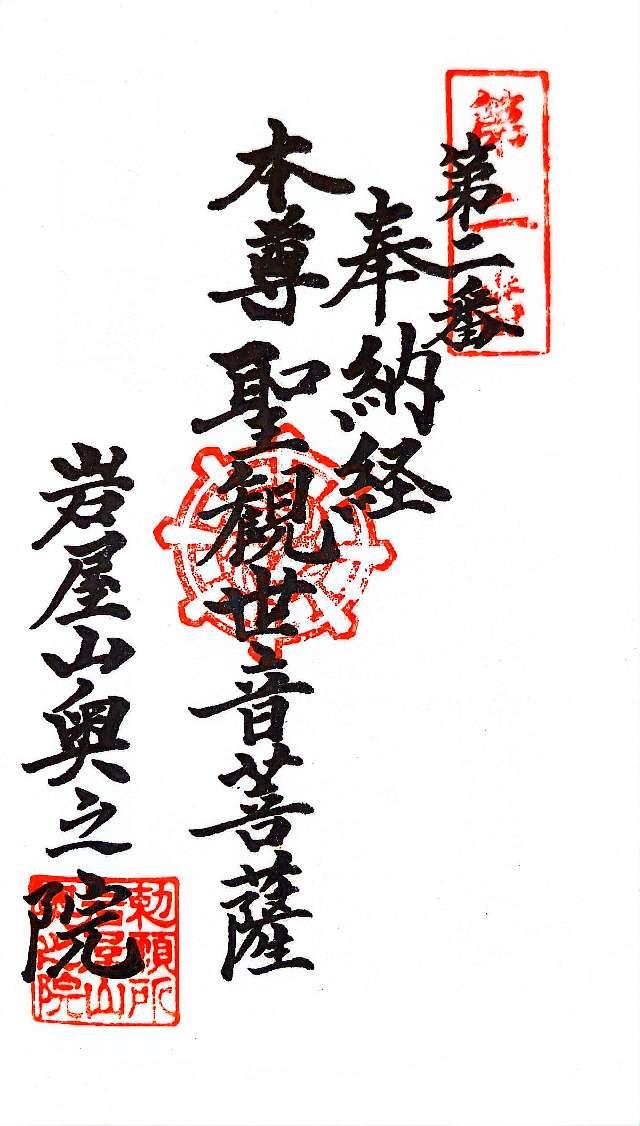 第二番
第二番
奉納経
本尊聖観世音菩薩
岩屋山奥之院
勅願所
岩屋山